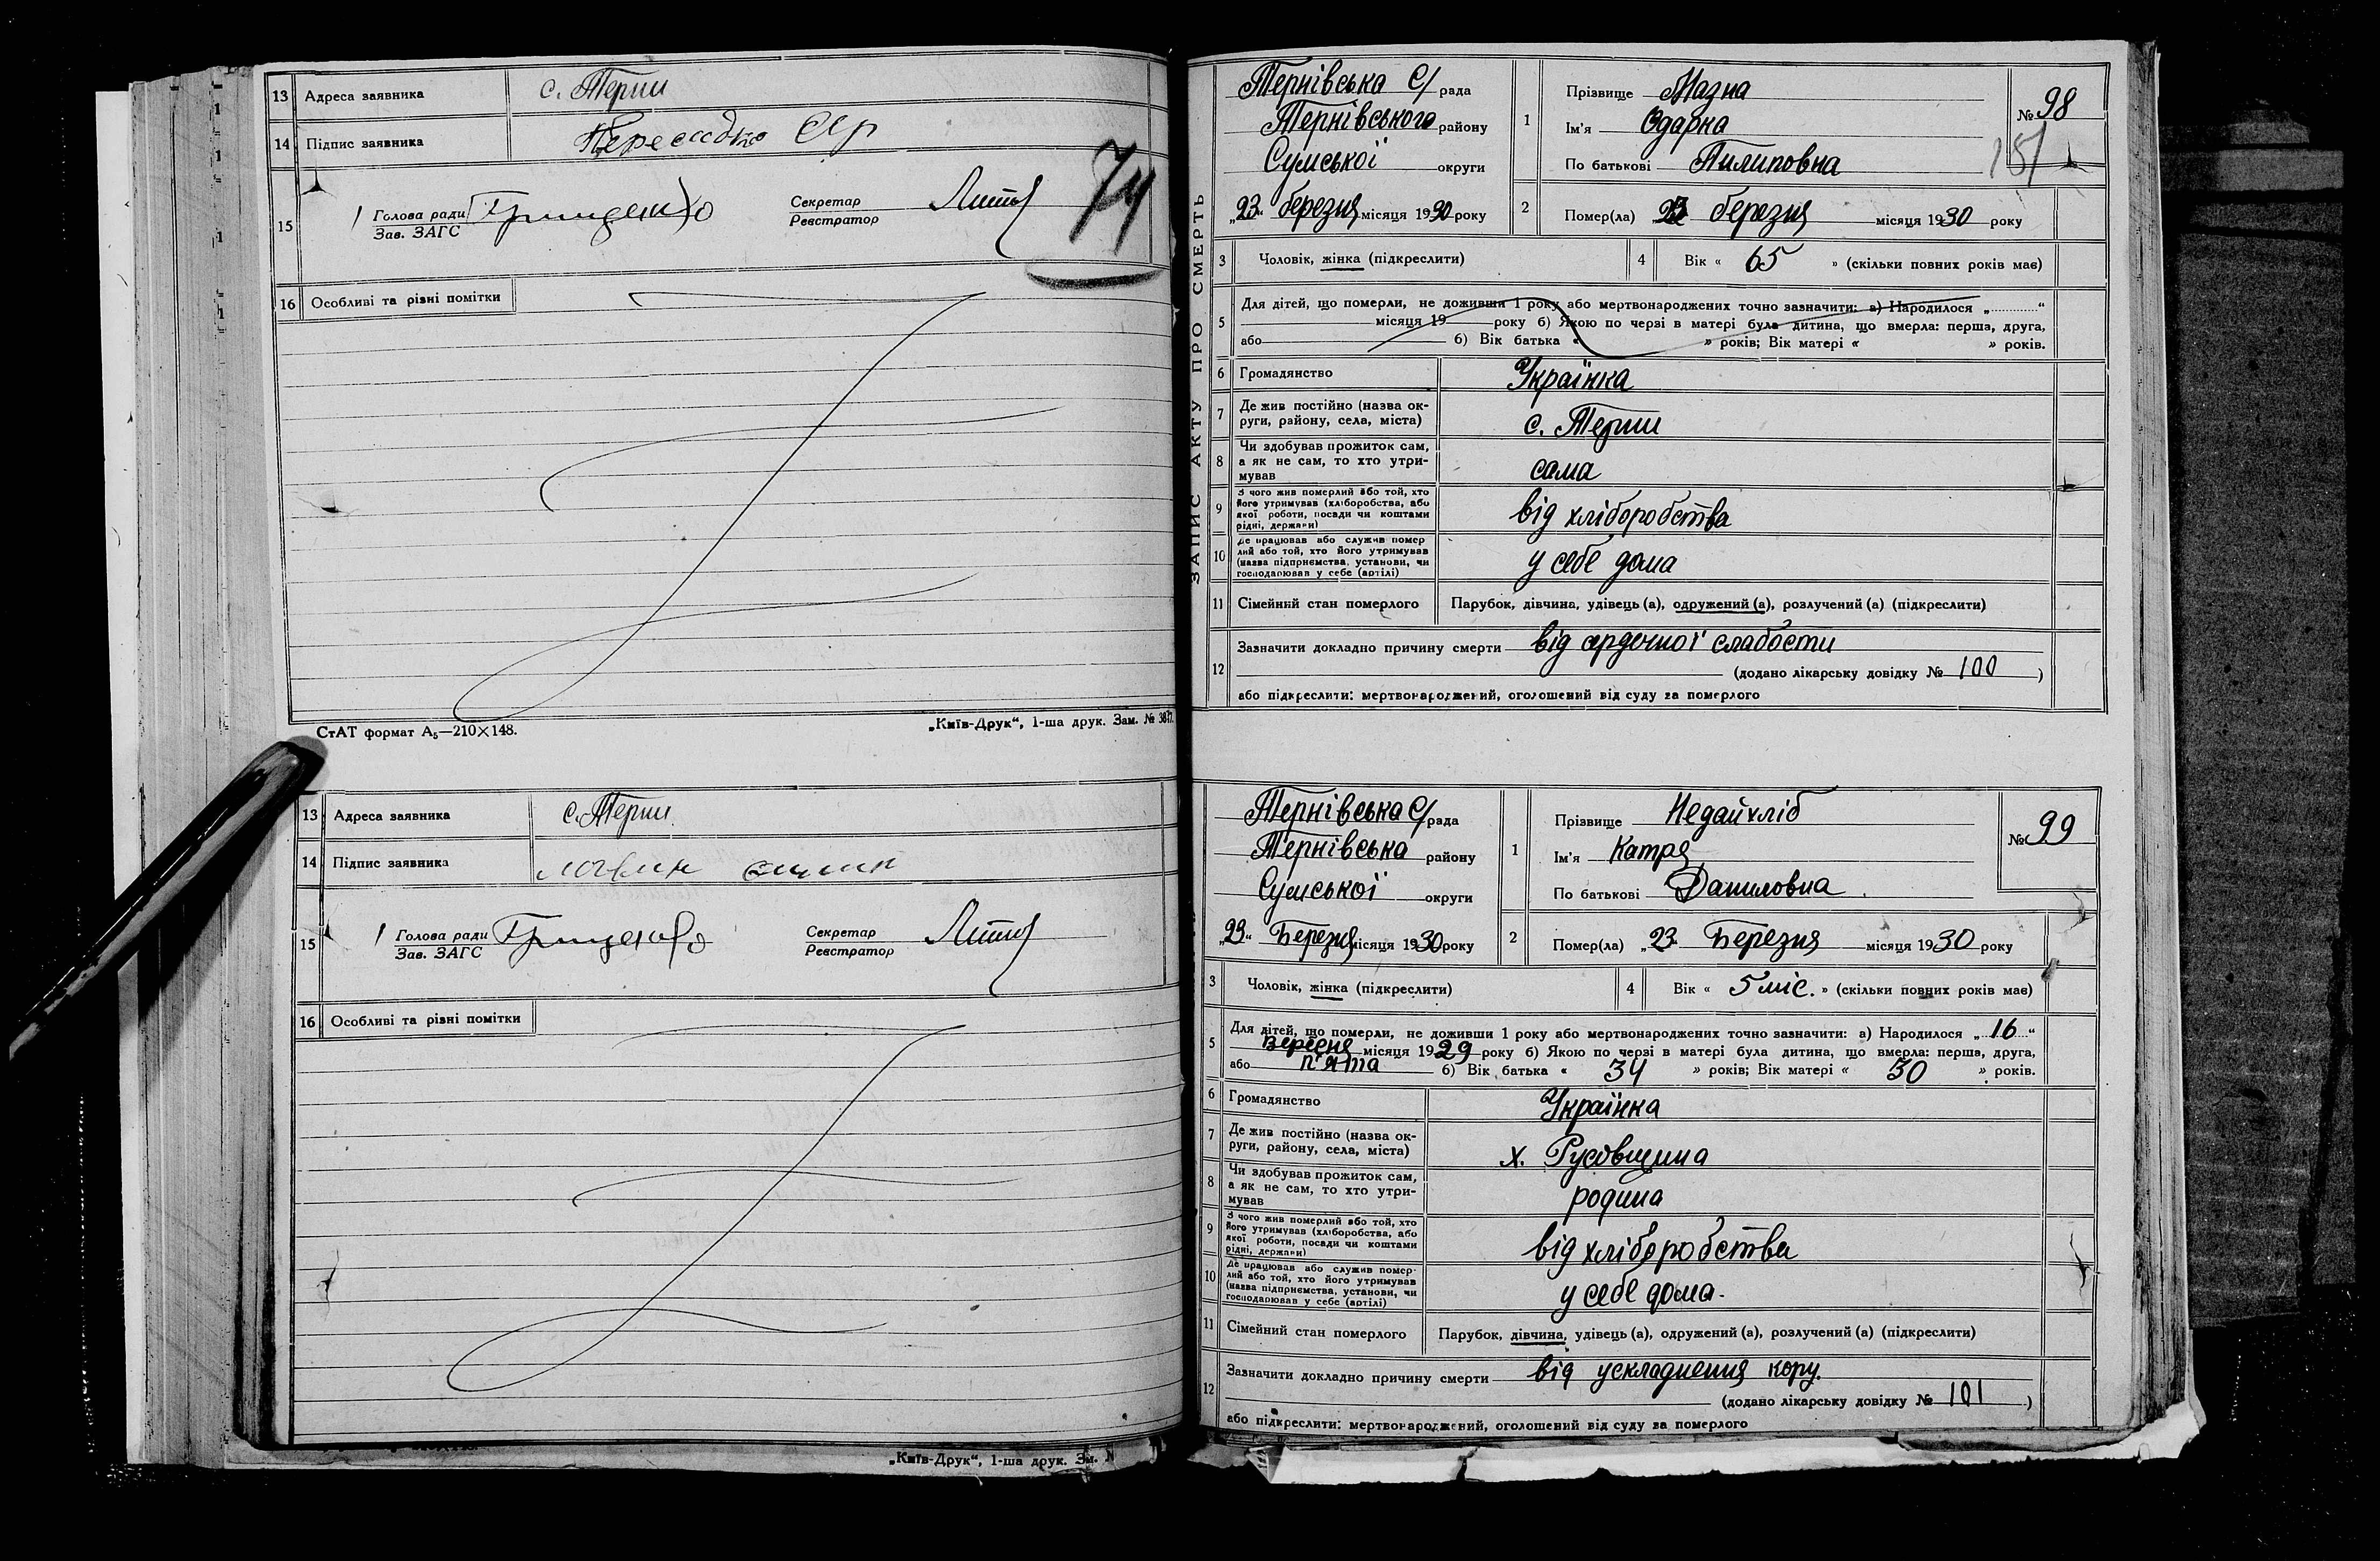 13 Адреса заявника с. Терни
14 Підпис заявника Пересадко
15 Голова ради Грищенко Секретар
Зав. ЗАГС Реєстратор
74
16 Особливі та різні помітки
СтАТ формат А₅—210×148. „Київ-Друк“, 1-ша друк. Зам. № 3877.
13 Адреса заявника с. Терни
14 Підпис заявника
15 Голова ради Грищенко Секретар
Зав. ЗАГС Реєстратор
16 Особливі та різні помітки
„Київ-Друк“, 1-ша друк. Зам. №
ЗАПИС АКТУ ПРО СМЕРТЬ
Тернівська С/рада
Тернівського району
Сумської округи
„23“ березня місяця 1930 року
1 Прізвище Мазна
Ім'я Одарка
По батькові Пилиповна
№ 98
151
2 Помер(ла) березня місяця 1930 року
3 Чоловік, жінка (підкреслити) 4 Вік « 65 » (скільки повних років має)
5 Для дітей, що померли, не доживши 1 року або мертвонароджених точно зазначити: а) Народилося „ “
місяця 19 року б) Якою по черзі в матері була дитина, що вмерла: перша, друга,
або б) Вік батька « » років; Вік матері « » років.
6 Громадянство Українка
7 Де жив постійно (назва ок-
руги, району, села, міста) с. Терни
8 Чи здобував прожиток сам,
а як не сам, то хто утри-
мував сама
9 З чого жив померлий або той, хто
його утримував (хліборобства, або
якої роботи, посади чи коштами
рідні, держави) від хліборобства
10 Де працював або служив помер
лий або той, хто його утримував
(назва підприємства, установи, чи
господарював у себе (артілі) у себе дома
11 Сімейний стан померлого Парубок, дівчина, удівець (а), одружений (а), розлучений (а) (підкреслити)
12 Зазначити докладно причину смерти від сердочної слабости
(додано лікарську довідку № 100 )
або підкреслити: мертвонароджений, оголошений від суду за померлого
Тернівська С/рада
Тернівська району
Сумської округи
„23“ Березня місяця 1930 року
1 Прізвище Недайхліб
Ім'я Катря
По батькові Даниловна
№ 99
2 Помер(ла) „23 Березня місяця 1930 року
3 Чоловік, жінка (підкреслити) 4 Вік « 5 міс. » (скільки повних років має)
5 Для дітей, що померли, не доживши 1 року або мертвонароджених точно зазначити: а) Народилося „ 16 “
місяця 1929 року б) Якою по черзі в матері була дитина, що вмерла: перша, друга,
або п'ята б) Вік батька « 34 » років; Вік матері « 30 » років.
6 Громадянство Українка
7 Де жив постійно (назва ок-
руги, району, села, міста) х. Русовщина
8 Чи здобував прожиток сам,
а як не сам, то хто утри-
мував родина
9 З чого жив померлий або той, хто
його утримував (хліборобства, або
якої роботи, посади чи коштами
рідні, держави) від хліборобства
10 Де працював або служив помер-
лий або той, хто його утримував
(назва підприємства, установи, чи
господарював у себе (артілі) у себе дома.
11 Сімейний стан померлого Парубок, дівчина, удівець (а), одружений (а), розлучений (а) (підкреслити)
12 Зазначити докладно причину смерти від ускладнення кору.
(додано лікарську довідку № 101 )
або підкреслити: мертвонароджений, оголошений від суду за померлого